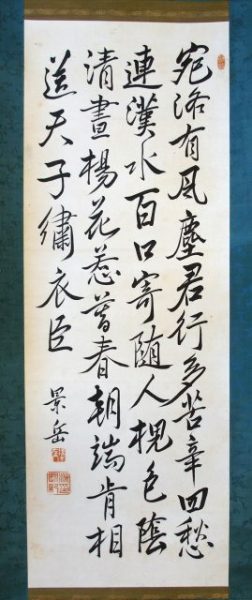 宛洛有風塵君行多苦辛四愁
連漢水百口寄随人槐色陰
清晝楊花惹暮春朝端肯相
送天子繡衣臣
景岳